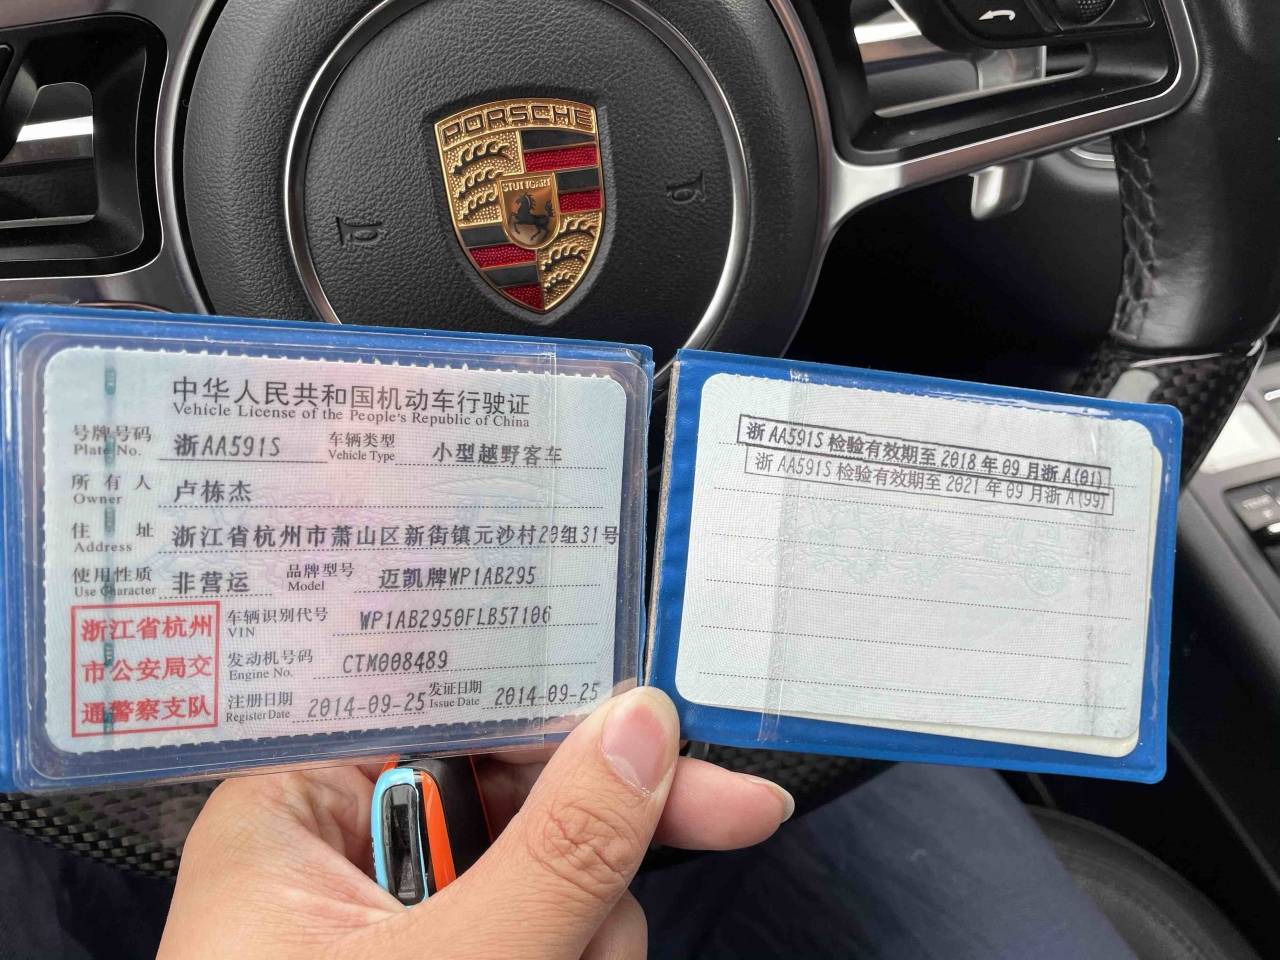 PORSCHE
STUTTGART
中华人民共和国机动车行驶证
Vehicle License of the People's Republic of China
号牌号码 浙AA591S 车辆类型 小型越野客车
Plate No. Vehicle Type
所有人 卢栋杰
Owner
住址 浙江省杭州市萧山区新街镇元沙村20组31号
Address
使用性质 非营运 品牌型号 迈凯牌WP1AB295
Use Character Model
浙江省杭州
市公安局交
通警察支队
车辆识别代号 WP1AB2950FLB57106
VIN
发动机号码 CTM008489
Engine No.
注册日期 2014-09-25 发证日期 2014-09-25
Register Date Issue Date
浙AA591S检验有效期至2018年09月浙A(01)
浙AA591S检验有效期至2021年09月浙A(99)